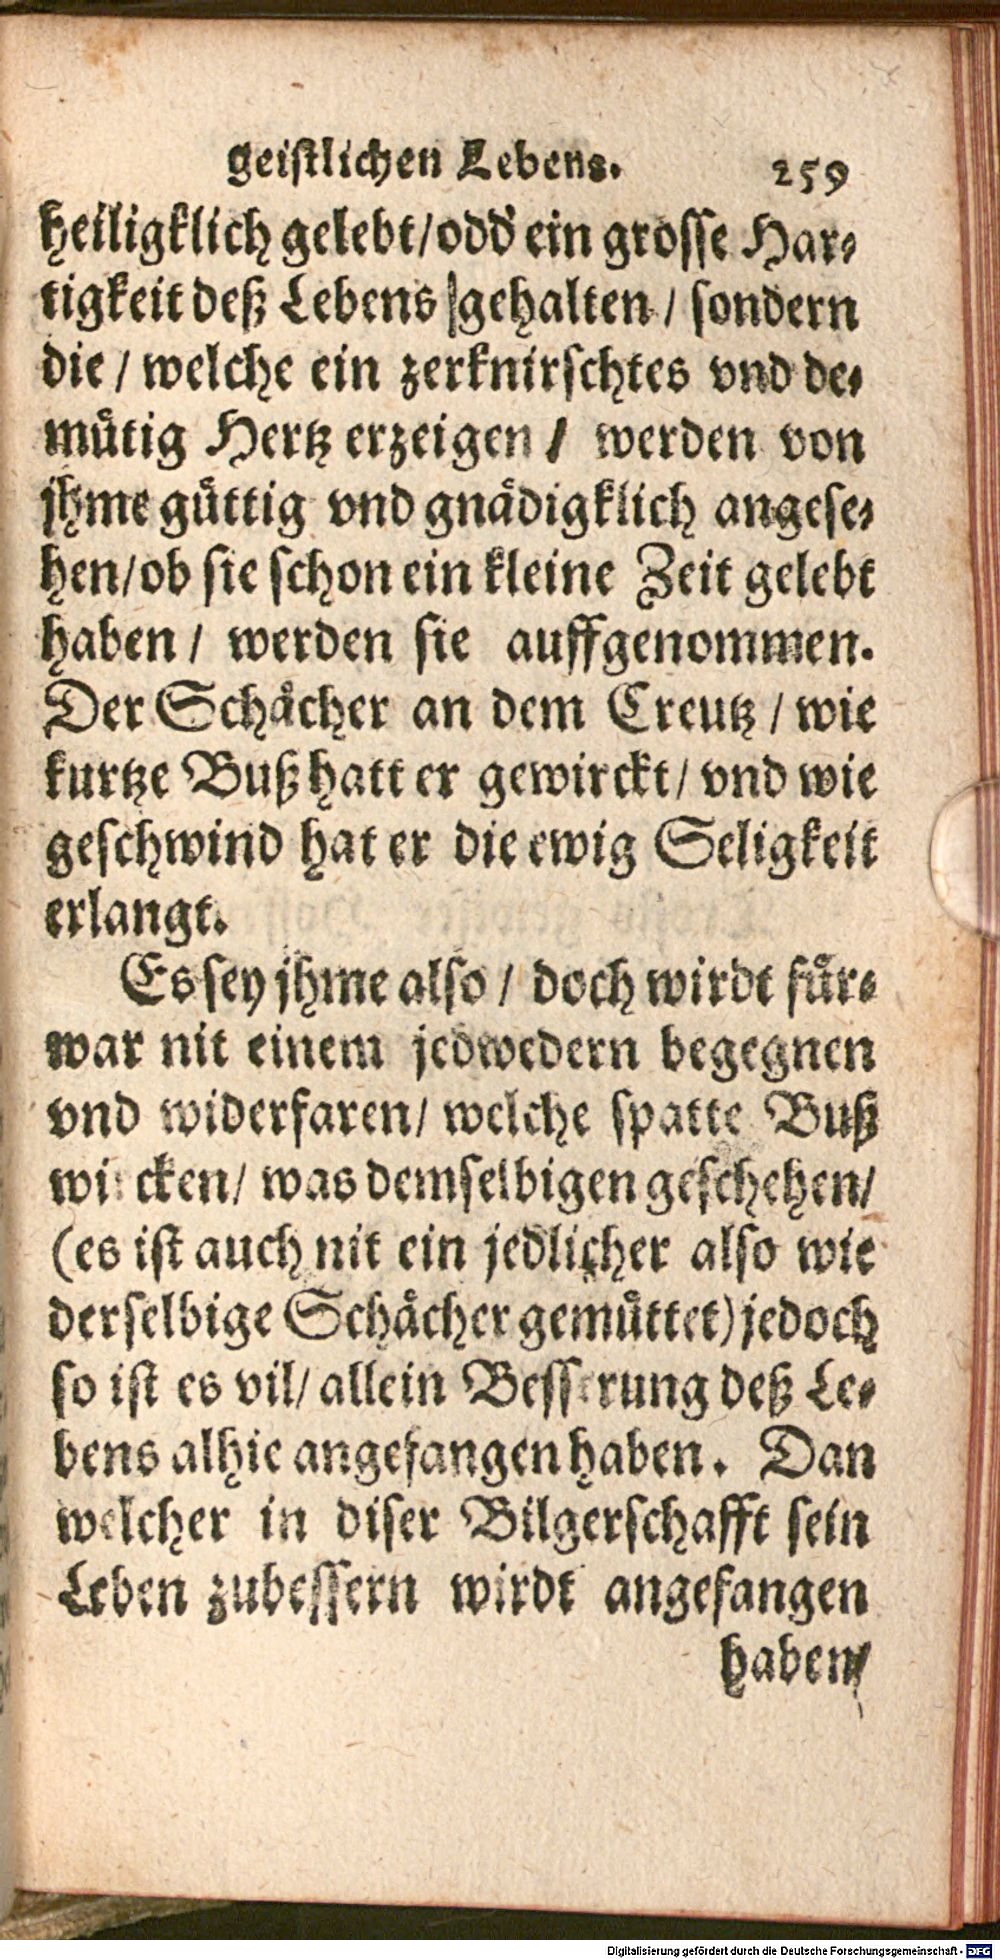 geistlichen Lebens. 259
heiligklich gelebt/odď ein grosse Har-
tigkeit deß Lebens gehalten / sondern
die / welche ein zerknirschtes vnd de-
mütig Hertz erzeigen / werden von
jhme güttig vnd gnädigklich angese-
hen/ob sie schon ein kleine Zeit gelebt
haben / werden sie auffgenommen.
Der Schächer an dem Creutz / wie
kurtze Buß hatt er gewirckt/ vnd wie
geschwind hat er die ewig Seligkeit
erlangt.
Es sey jhme also / doch wirdt für-
war nit einem jedwedern begegnen
vnd widerfaren/ welche spatte Buß
wircken/ was demselbigen geschehen/
(es ist auch nit ein jedlicher also wie
derselbige Schächer gemüttet) jedoch
so ist es vil/ allein Besserung deß Le-
bens alhie angefangen haben. Dan
welcher in diser Bilgerschafft sein
Leben zubessern wirdt angefangen
haben/
Digitalisierung gefördert durch die Deutsche Forschungsgemeinschaft - DFG